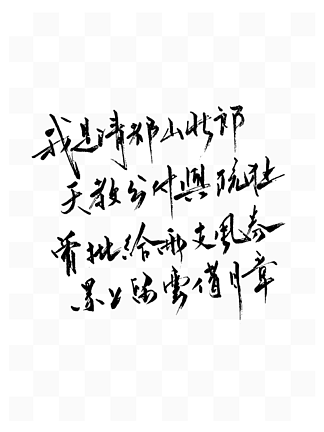 我是清都山水郎
天教分付與疏狂
曾批給雨支風券
累上留雲借月章